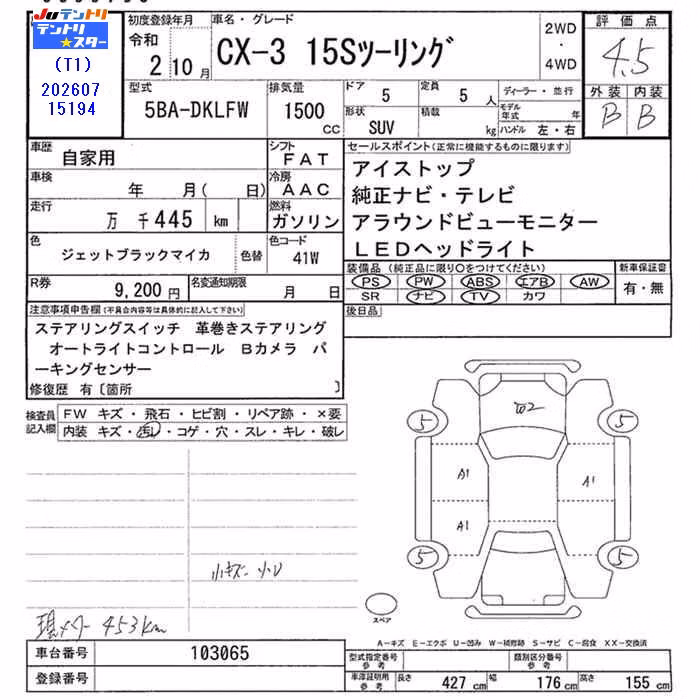 Juテントリ
テントリ★スター
(T1)
202607
15194
初度登録年月
令和
2年10月
車名・グレード
CX-3 15Sツーリング
2WD
・
4WD
評価点
4.5
外装 内装
B B
型式
5BA-DKLFW
排気量
1500
CC
ドア 5
形状 SUV
定員 5人
積載 kg
ディーラー・並行
モデル年式 年
ハンドル 左・右
車歴 自家用
シフト FAT
車検 年 月( 日)
冷房 AAC
走行 万 千445 km
燃料 ガソリン
色 ジェットブラックマイカ 色替
色コード 41W
R券 9,200円
名変通知期限 月 日
セールスポイント(正常に機能するものに限ります)
アイストップ
純正ナビ・テレビ
アラウンドビューモニター
LEDヘッドライト
装備品 (純正品に限り○をつけてください) 新車保証書
PS PW ABS エアB AW 有・無
SR ナビ TV カワ
後日品
注意事項申告欄(不具合内容等は具体的に記入して下さい)
ステアリングスイッチ 革巻きステアリング
オートライトコントロール Bカメラ パ
ーキングセンサー
修復歴 有〔箇所 〕
検査員記入欄
FW キズ・飛石・ヒビ割・リペア跡・×要
内装 キズ・汚レ・コゲ・穴・スレ・キレ・破レ
5 5
A1 A1
A1
5 5
小キズ 小U
スペア
現メーター 453km
A-キズ E-エクボ U-凹み W-補修跡 S-サビ C-腐食 XX-交換済
車台番号 103065
登録番号
型式指定番号 参考
類別区分番号 参考
車庫証明用 参考
長さ 427cm 幅 176cm 高さ 155cm